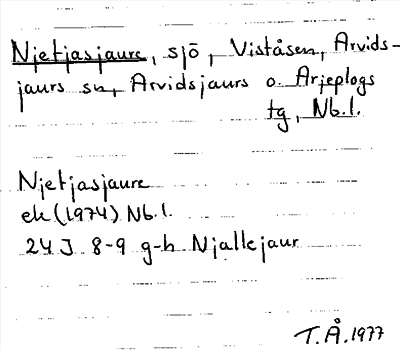 Njetjasjaure, sjö, Viståsen, Arvids-
jaurs sn, Arvidsjaurs o. Arjeplogs
tg, Nb.l.
Njetjasjaure
ek (1974) Nb.l.
24J 8-9 g-h Njallejaur
T.Å. 1977